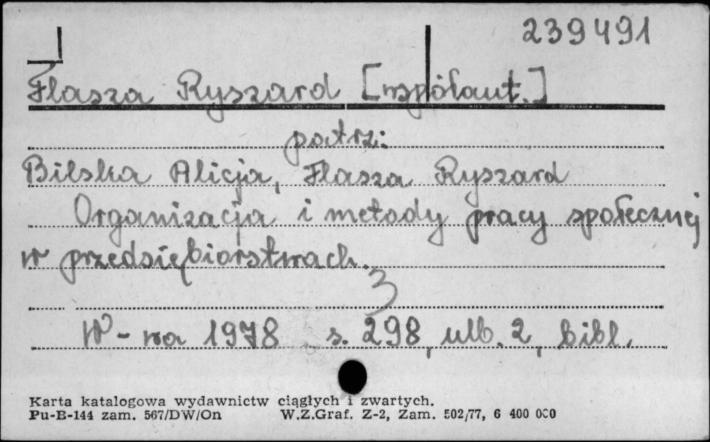 239491
Flasza Ryszard [współaut.]
patrz:
Bilska Alicja, Flasza Ryszard
Organizacja i metody pracy społecznej
w przedsiębiorstwach.
3
W-wa 1978 s. 298, ulb. 2, bibl.
Karta katalogowa wydawnictw ciągłych i zwartych.
Pu-B-144 zam. 567/DW/On W.Z.Graf. Z-2, Zam. 502/77, 6 400 000